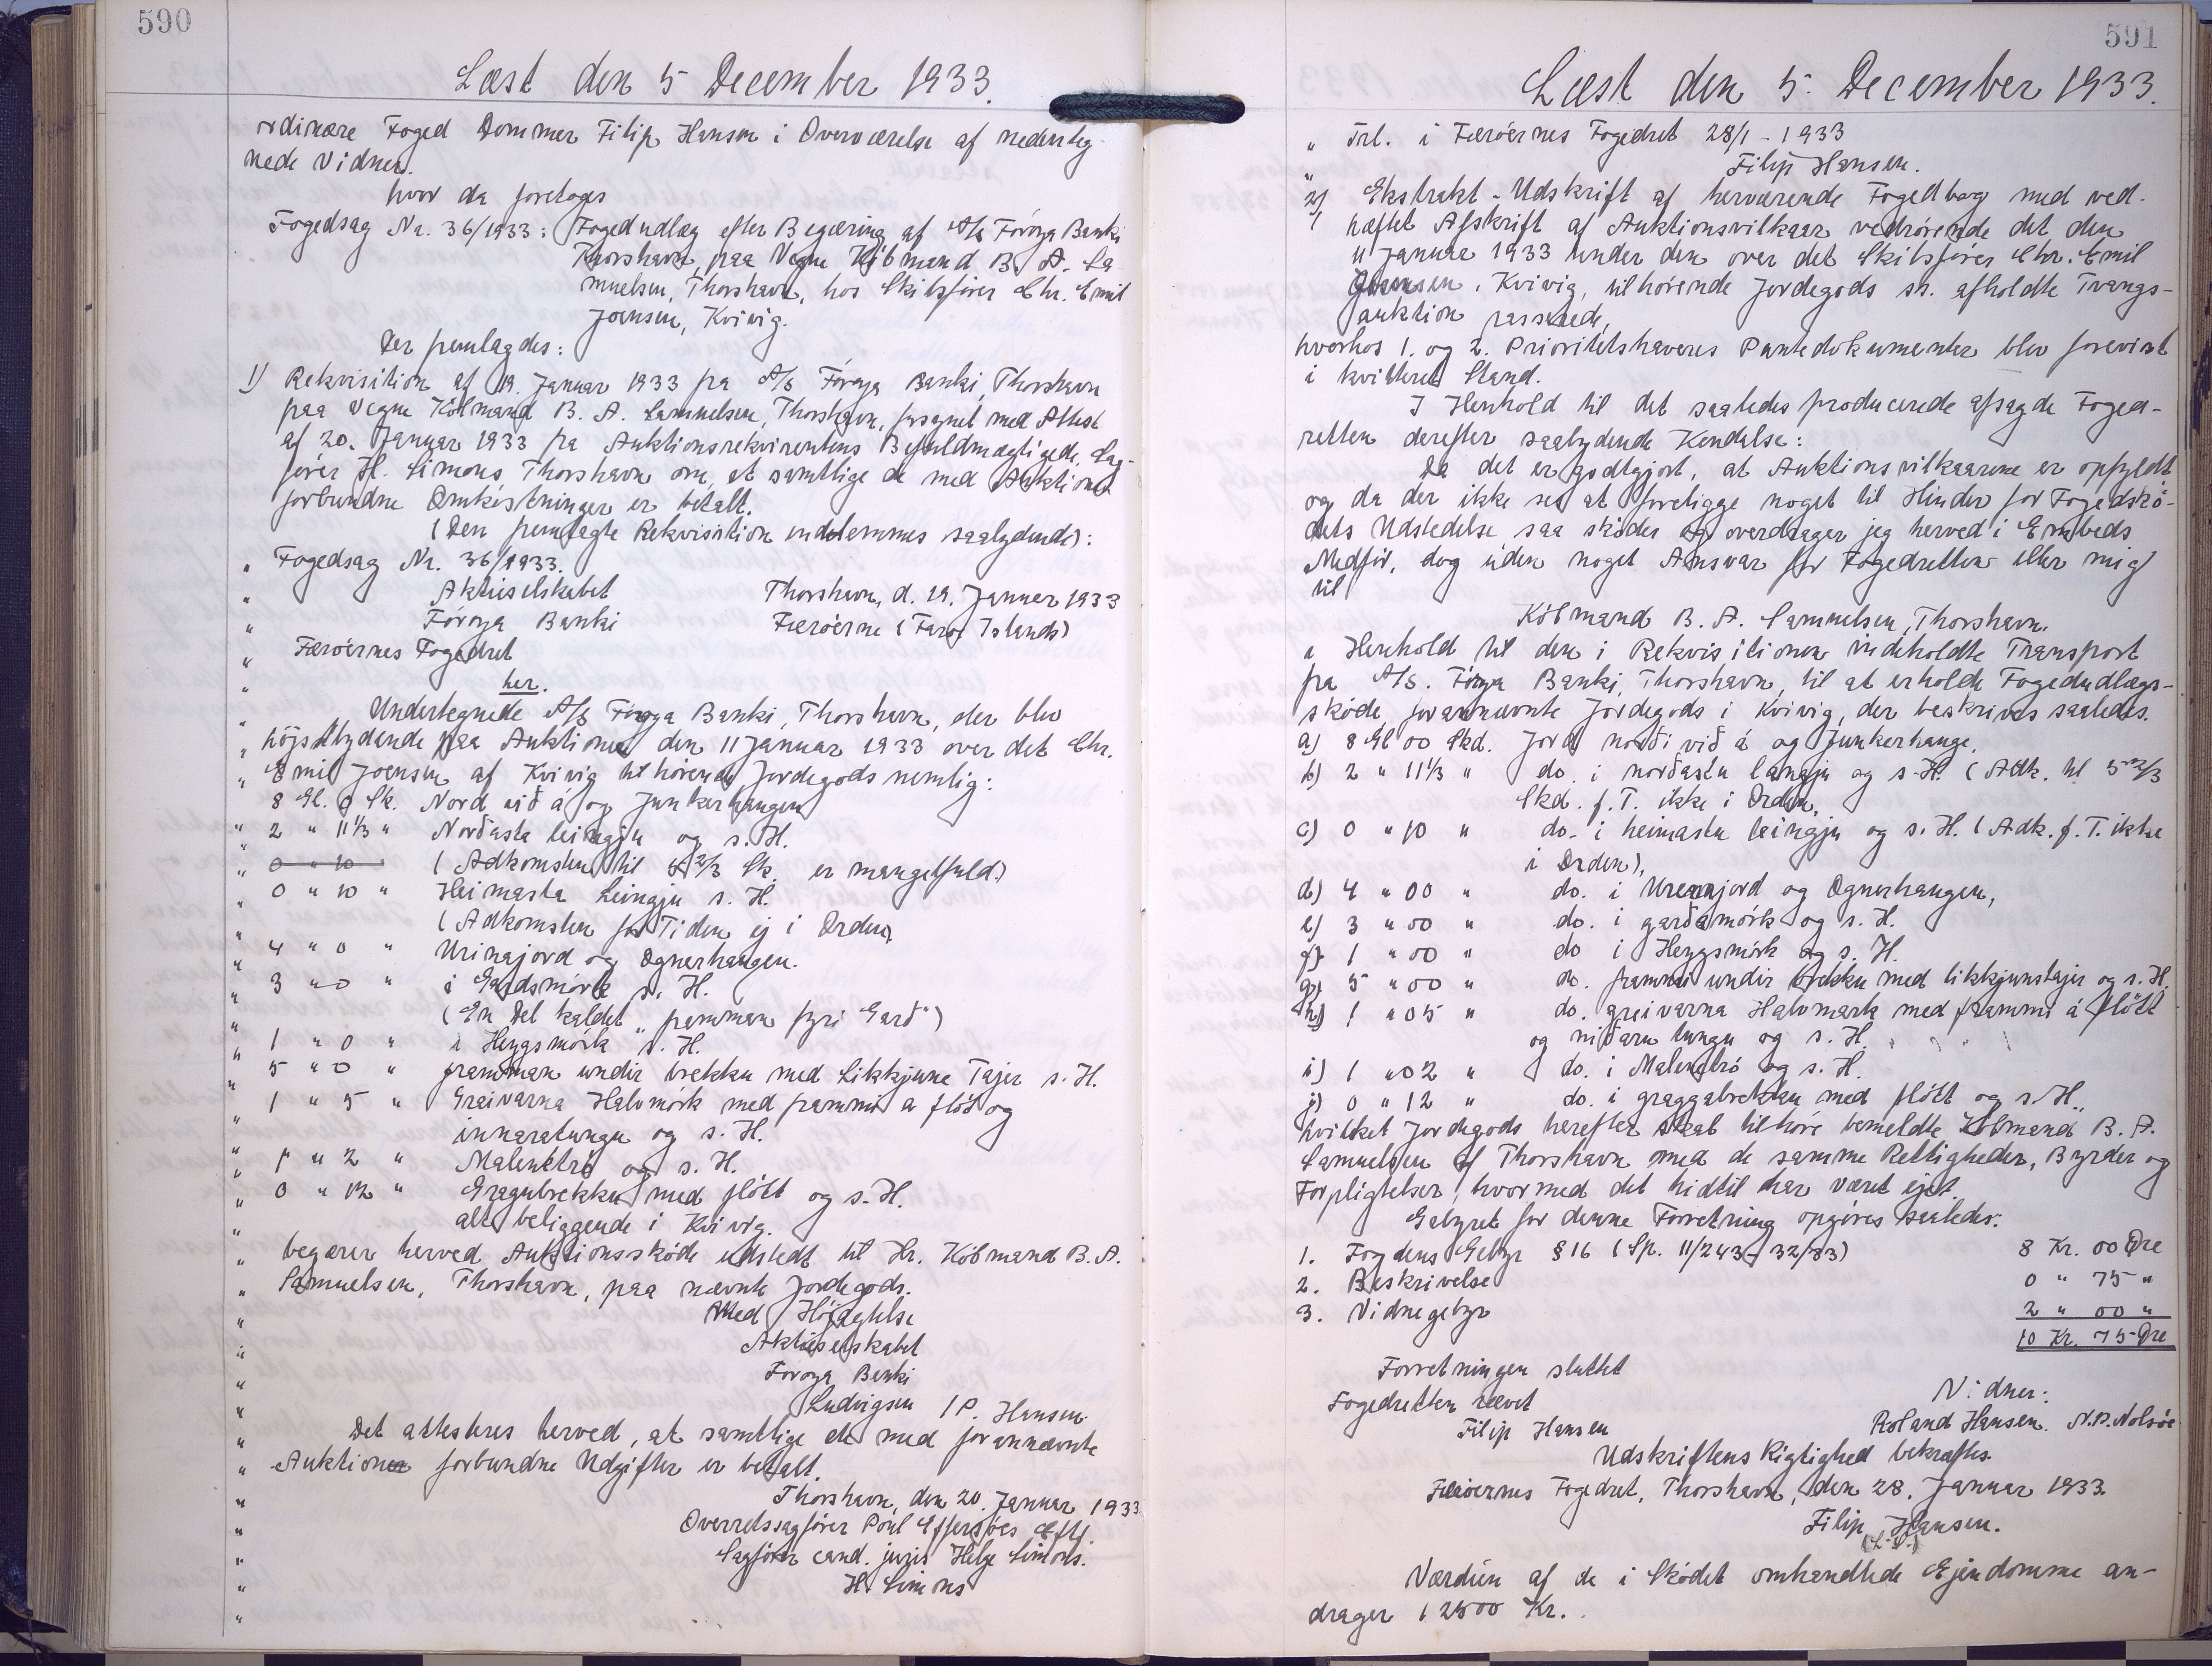 590
Læst den 5 December 1933.
ordinære Foged Dommer Filip Hansen i Overværelse af nedenteg-
nede Vidner.
hvor da foretoges
Fogedsag Nr. 36/1933: Fogedudlæg efter Begæring af A/S Føroya Banki
Thorshavn, paa Vegne Købmand B. A. Sa-
muelsen, Thorshavn, hos Skibsfører Chr. Emil
Joensen, Kvivig.
Der fremlagdes:
1) Rekvisition af 19. Januar 1933 fra A/S Føroya Banki, Thorshavn
paa Vegne Købmand B. A. Samuelsen, Thorshavn, forsynet med Attest
af 20. Januar 1933 fra Auktionsrekvirentens Befuldmægtigede, Sag-
fører H. Simons, Thorshavn om, at samtlige de med Auktionen
forbundne Omkostninger er betalt.
(Den fremlagte Rekvisition indlemmes saalydende):
" Fogedsag Nr. 36/1933.
" Aktieselskabet Thorshavn, d. 19. Januar 1933
" Føroya Banki Færøerne (Faroe Islands)
" Færøernes Fogedret
" her.
" Undertegnede A/S Føroya Banki, Thorshavn, der blev
" højstbydende paa Auktionen den 11 Januar 1933 over det Chr.
" Emil Joensen af Kvivig tilhørende Jordegods nemlig:
8 Gl. 0 Sk. Nord við á og Junkerhangen
" 2 " 11 1/3 " Norðasta leingju og s. H.
" 0 " 10 (Adkomsten til 5 2/3 Sk. er mangelfuld.)
" 0 " 10 " Heimasta Leingju s. H.
" (Adkomsten for Tiden ej i Orden)
" 4 " 0 " Urinajord og Ognerhangen.
" 3 " 0 " i Gardsmørk s. H.
" (En Del kaldet "framman fyri Garð")
" 1 " 0 " i Heygsmørk s. H.
" 5 " 0 " framman undir brekku med Likkjune Tajer s. H.
" 1 " 5 " Greivarna Halvmørk med frammi a fløt og
" innaratungu og s. H.
" 1 " 2 " Malenstrð og s. H.
" 0 " 12 " Gragubrekku med fløtt og s. H.
" alt beliggende i Kvivig.
" begærer herved Auktionsskøde udstedt til Hr. Købmand B. A.
" Samuelsen, Thorshavn, paa nævnte Jordegods.
" Med Højagtelse
" Aktieselskabet
" Føroya Banki
" Ludvigsen / P. Hansen
" Det attesteres herved, at samtlige de med forannævnte
" Auktioner forbundne Udgifter er betalt.
" Thorshavn, den 20. Januar 1933
" Overretssagfører Poul Effersøes Eftf.
" Sagfører cand. juris Helge Simons.
" H. Simons
591
Læst den 5. December 1933.
" Frl. i Færøernes Fogedret 28/1 - 1933
" Filip Hansen.
2) Ekstrakt-Udskrift af herværende Fogedbog med ved-
hæftet Afskrift af Auktionsvilkaar vedrørende det den
11 Januar 1933 under den over det Skibsfører Chr. Emil
Joensen, Kvivig, tilhørende Jordegods sn. afholdte Tvangs-
auktion passerede,
hvorhos 1. og 2. Prioritetshaveres Pantedokumenter blev forevist
i kvitteret Stand.
I Henhold til det saaledes producerede afsagde Foged-
retten derefter saalydende Kendelse:
Da det er godtgjort, at Auktionsvilkaarene er opfyldt,
og da der ikke ses at foreligge noget til Hinder for Fogedskø-
dets Udstedelse saa skøder og overdrager jeg herved i Embeds
Medfør, dog uden noget Ansvar for Fogedretten eller mig
til
Købmand B. A. Samuelsen, Thorshavn.
i Henhold til den i Rekvisitionen indeholdte Transport
fra A/S. Føroya Banki, Thorshavn, til at erholde Fogedudlægs-
skøde, forannævnte Jordegods i Kvivig, der beskrives saaledes.
a) 8 Gl 00 Skd. Jord norði við á og Junkerhange,
b) 2 " 11 1/3 " do. i norðastu langju og s. H. (Adk. til 5 2/3
Skd. f. T. ikke i Orden,
c) 0 " 10 " do. i heimastu leingju og s. H. (Adk. f. T. ikke
i Orden),
d) 4 " 00 " do. i Urennjord og Ognerhangen,
e) 3 " 00 " do. i garðamørk og s. H.
f) 1 " 00 " do i Heygsmørk og s. H.
g) 5 " 00 " do. frammi undir brekku med likkjunstajir og s. H.
h) 1 " 05 " do. greivarna Halvmark med frammi á fløtt
og niðaru tungu og s. H.
i) 1 " 02 " do. i Malenstró og s. H.
j) 0 " 12 " do. i graggabrekku med fløtt og s. H.,
hvilket Jordegods herefter skal tilhøre bemeldte Købmand B. A.
Samuelsen af Thorshavn med de samme Rettigheder, Byrder og
Forpligtelser, hvormed det hidtil har været ejet.
Gebyret for denne Forretning opgøres saaledes:
1. Fogdens Gebyr § 16 (Sp. 11/243 - 32/83) 8 Kr. 00 Øre
2. Beskrivelse 0 " 75 "
3. Vidnegebyr 2 " 00 "
10 Kr. 75 Øre
Forretningen sluttet
Fogedretten hævet Vidner:
Filip Hansen Roland Hansen. N. P. Nolsøe
Udskriftens Rigtighed bekræftes.
Færøernes Fogedret, Thorshavn, den 28. Januar 1933.
Filip Hansen.
(L. S.)
Værdien af de i Skødet omhandlede Ejendomme an-
drager 12500 Kr.